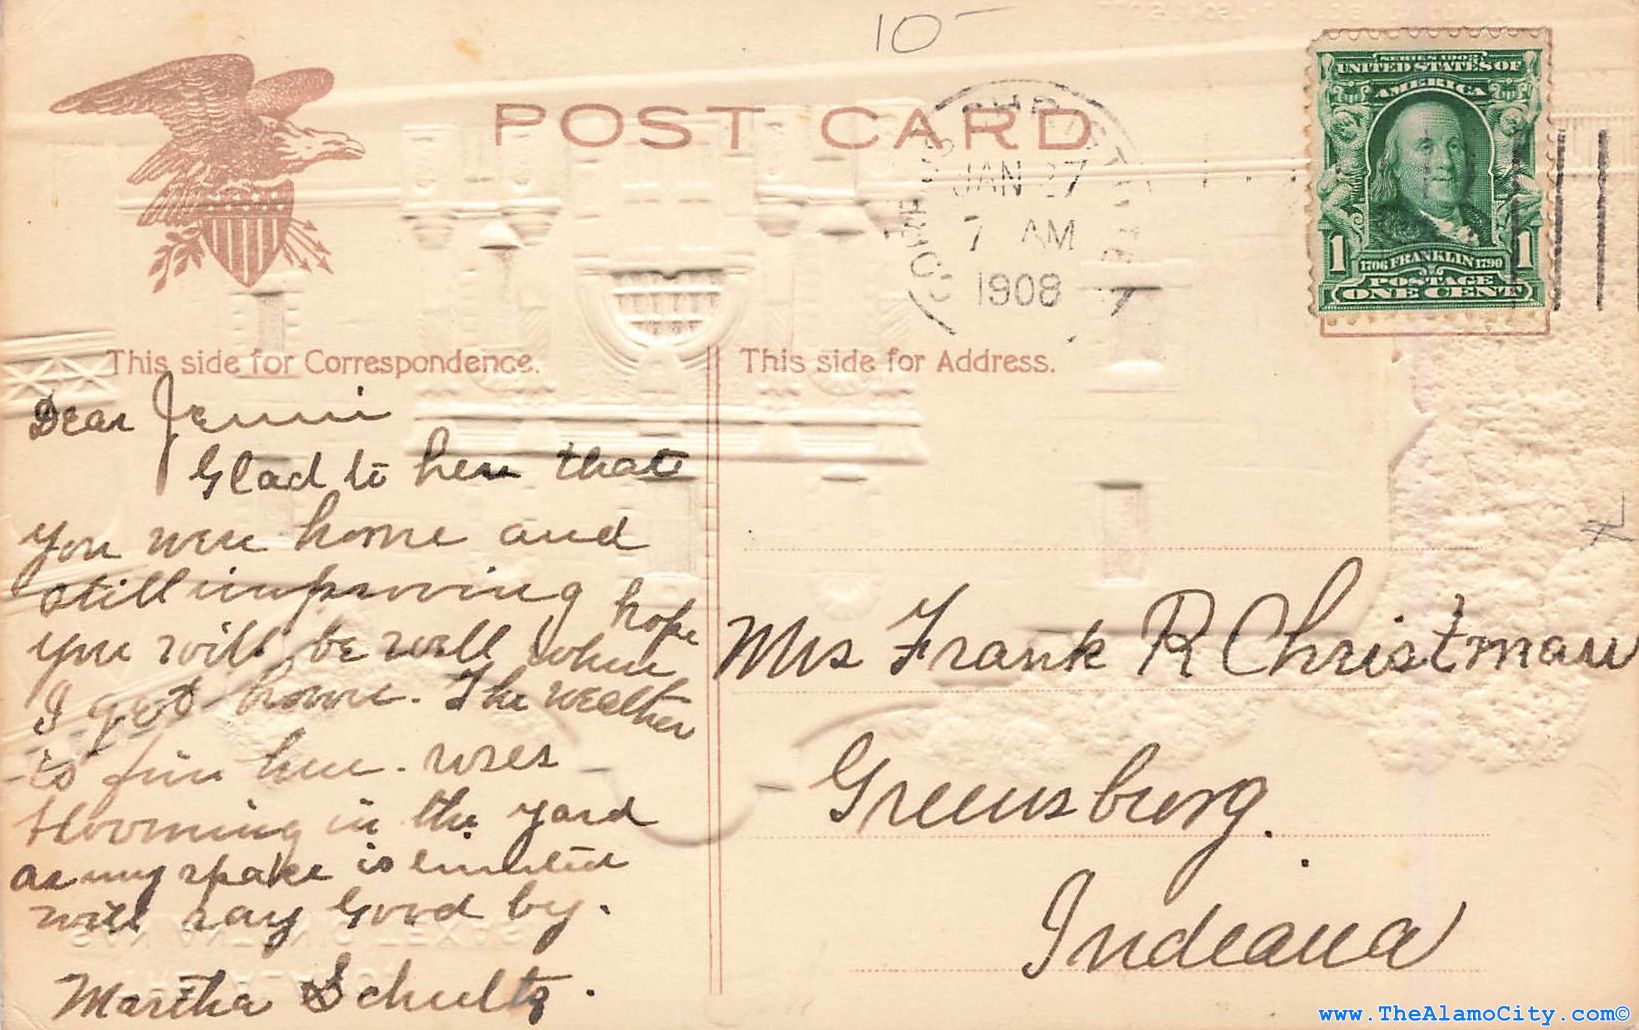 10-
POST CARD
CORPUS CHRISTI
JAN 27
7 AM
1908
SERIES 1902
UNITED STATES OF
AMERICA
1 1
1706 FRANKLIN 1790
POSTAGE
ONE CENT
This side for Correspondence.
This side for Address.
Dear Jenni
Glad to hear that
you were home and
still improving hope
you will be well when
I get home. The weather
is fine here. roses
blooming in the yard
as my spake is limited
will say Good by.
Martha Schultz.
Mrs Frank R Christman
Greensburg.
Indiana
www.TheAlamoCity.com©